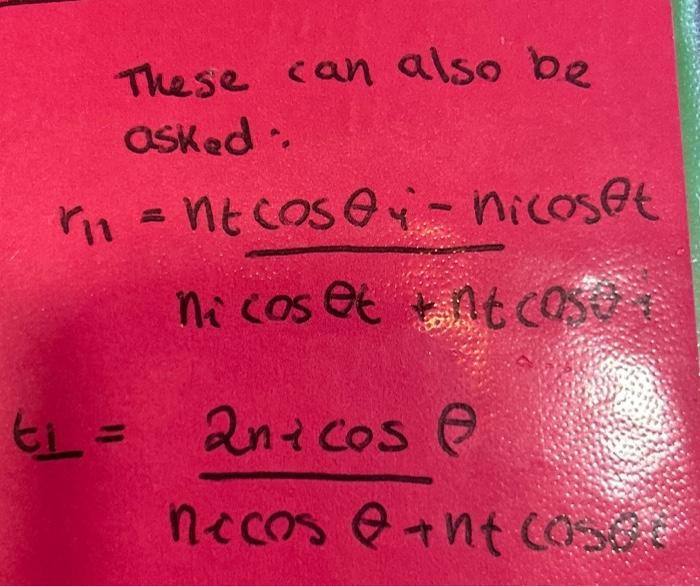 These can also be
asked:
r11 = nt cosθi - nicosθt
ni cos θt + nt cosθi
t⊥ = 2ni cos θ
nicos θ + nt cosθt